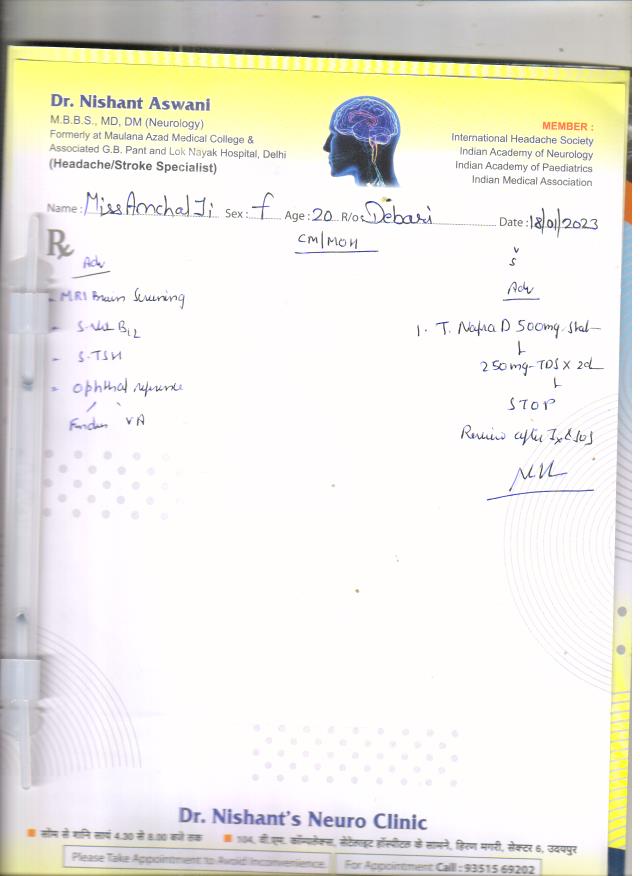 Dr. Nishant Aswani
M.B.B.S., MD, DM (Neurology)
Formerly at Maulana Azad Medical College &
Associated G.B. Pant and Lok Nayak Hospital, Delhi
(Headache/Stroke Specialist)
MEMBER :
International Headache Society
Indian Academy of Neurology
Indian Academy of Paediatrics
Indian Medical Association
Name: Miss Anchal Ji Sex: f Age: 20 R/o: Debari Date: 18/01/2023
Rx
CM/MOH
Adv
- MRI Brain Screening
- S. Vit B12
- S. TSH
- Ophthal reference
Fundus VA
Adv
1. T. Napra D 500mg Stat
250mg - TDS x 2d
STOP
Review after Ix & SOS
Dr. Nishant's Neuro Clinic
सोम से शनि सायं 4.30 से 8.00 बजे तक
104, वी.एम. कॉम्पलेक्स, सेटेलाइट हॉस्पीटल के सामने, हिरण मगरी, सेक्टर 6, उदयपुर
Please Take Appointment to Avoid Inconvenience.
For Appointment Call : 93515 69202